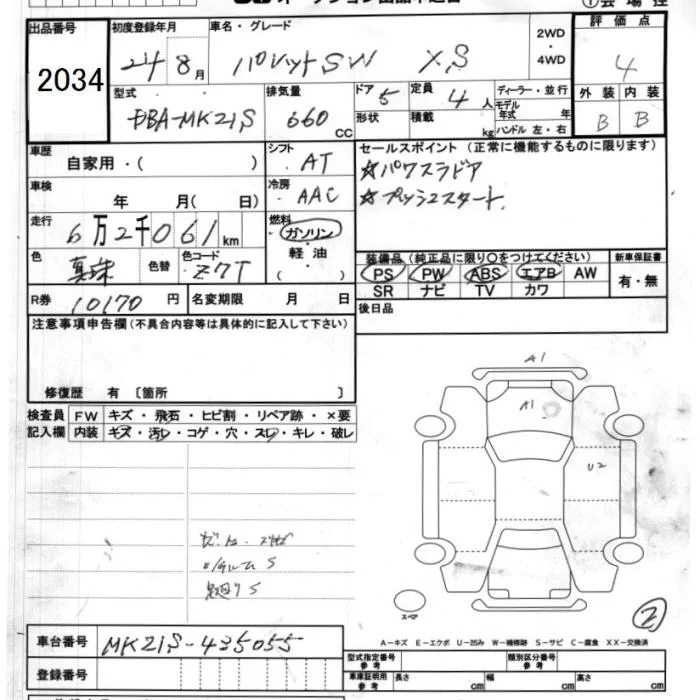 出品番号 2034
初度登録年月 24 8月
車名・グレード パレットSW XS
2WD・4WD
評価点 4
外装 B 内装 B
型式 DBA-MK21S
排気量 660 CC
ドア 5 定員 4人
形状 積載 kg
ディーラー・並行
モデル年式 年
ハンドル 左・右
車歴 自家用・( )
シフト AT
セールスポイント (正常に機能するものに限ります)
☆パワスラドア
☆プッシュスタート
車検 年 月( 日)
冷房 AAC
走行 6万2千061km
燃料 ガソリン・軽油 ( )
色 真珠 色替 色コード Z7T
装備品 (純正品に限り○をつけてください)
PS PW ABS エアB AW
SR ナビ TV カワ
新車保証書 有・無
R券 10170円 名変期限 月 日
後日品
注意事項申告欄 (不具合内容等は具体的に記入して下さい)
修復歴 有 〔箇所 〕
検査員記入欄 FW キズ・飛石・ヒビ割・リペア跡・×要
内装 キズ・汚レ・コゲ・穴・スレ・キレ・破レ
A1
A1
U2
スペア
2
A-キズ E-エクボ U-凹み W-補修跡 S-サビ C-腐食 XX-交換済
車台番号 MK21S-435055
登録番号
型式指定番号 参考 類別区分番号 参考
車庫証明用 参考 長さ cm 幅 cm 高さ cm